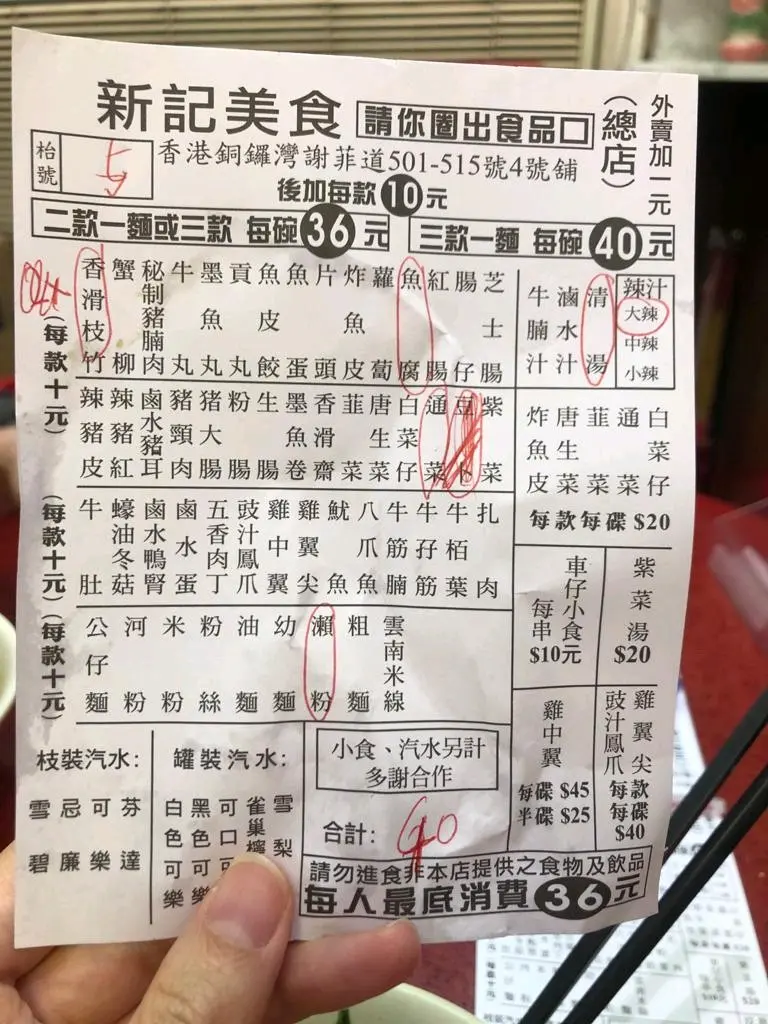 新記美食
請你圈出食品口
(總店)
外賣加一元
枱號
5
香港銅鑼灣謝菲道501-515號4號舖
後加每款10元
二款一麵或三款 每碗36元
三款一麵 每碗40元
(每款十元)
香滑枝竹
蟹柳
秘制豬腩肉
牛丸
墨魚丸
貢丸
魚皮餃
魚蛋
片頭
炸魚皮
蘿蔔
魚腐
紅腸
腸仔
芝士腸
牛腩汁
滷水汁
清湯
辣汁
大辣
中辣
小辣
辣豬皮
辣豬紅
鹵水豬耳
豬頸肉
豬大腸
粉腸
生腸
墨魚卷
香滑齋
韮菜
唐生菜
白菜仔
通菜
豆卜
紫菜
炸魚皮
唐生菜
韮菜
通菜
白菜仔
每款每碟 $20
(每款十元)
牛肚
蠔油冬菇
鹵水鴨腎
鹵水蛋
五香肉丁
豉汁鳳爪
雞中翼
雞翼尖
魷魚
八爪魚
牛筋腩
牛孖筋
牛栢葉
扎肉
車仔小食
每串
$10元
紫菜湯
$20
(每款十元)
公仔麵
河粉
米粉
粉絲
油麵
幼麵
瀨粉
粗麵
雲南米線
雞中翼
每碟 $45
半碟 $25
雞翼尖
豉汁鳳爪
每款
每碟
$40
枝裝汽水:
雪碧
忌廉
可樂
芬達
罐裝汽水:
白色可樂
黑色可樂
可口可
雀巢檸
雪梨
小食、汽水另計
多謝合作
合計:
40
請勿進食非本店提供之食物及飲品
每人最底消費36元